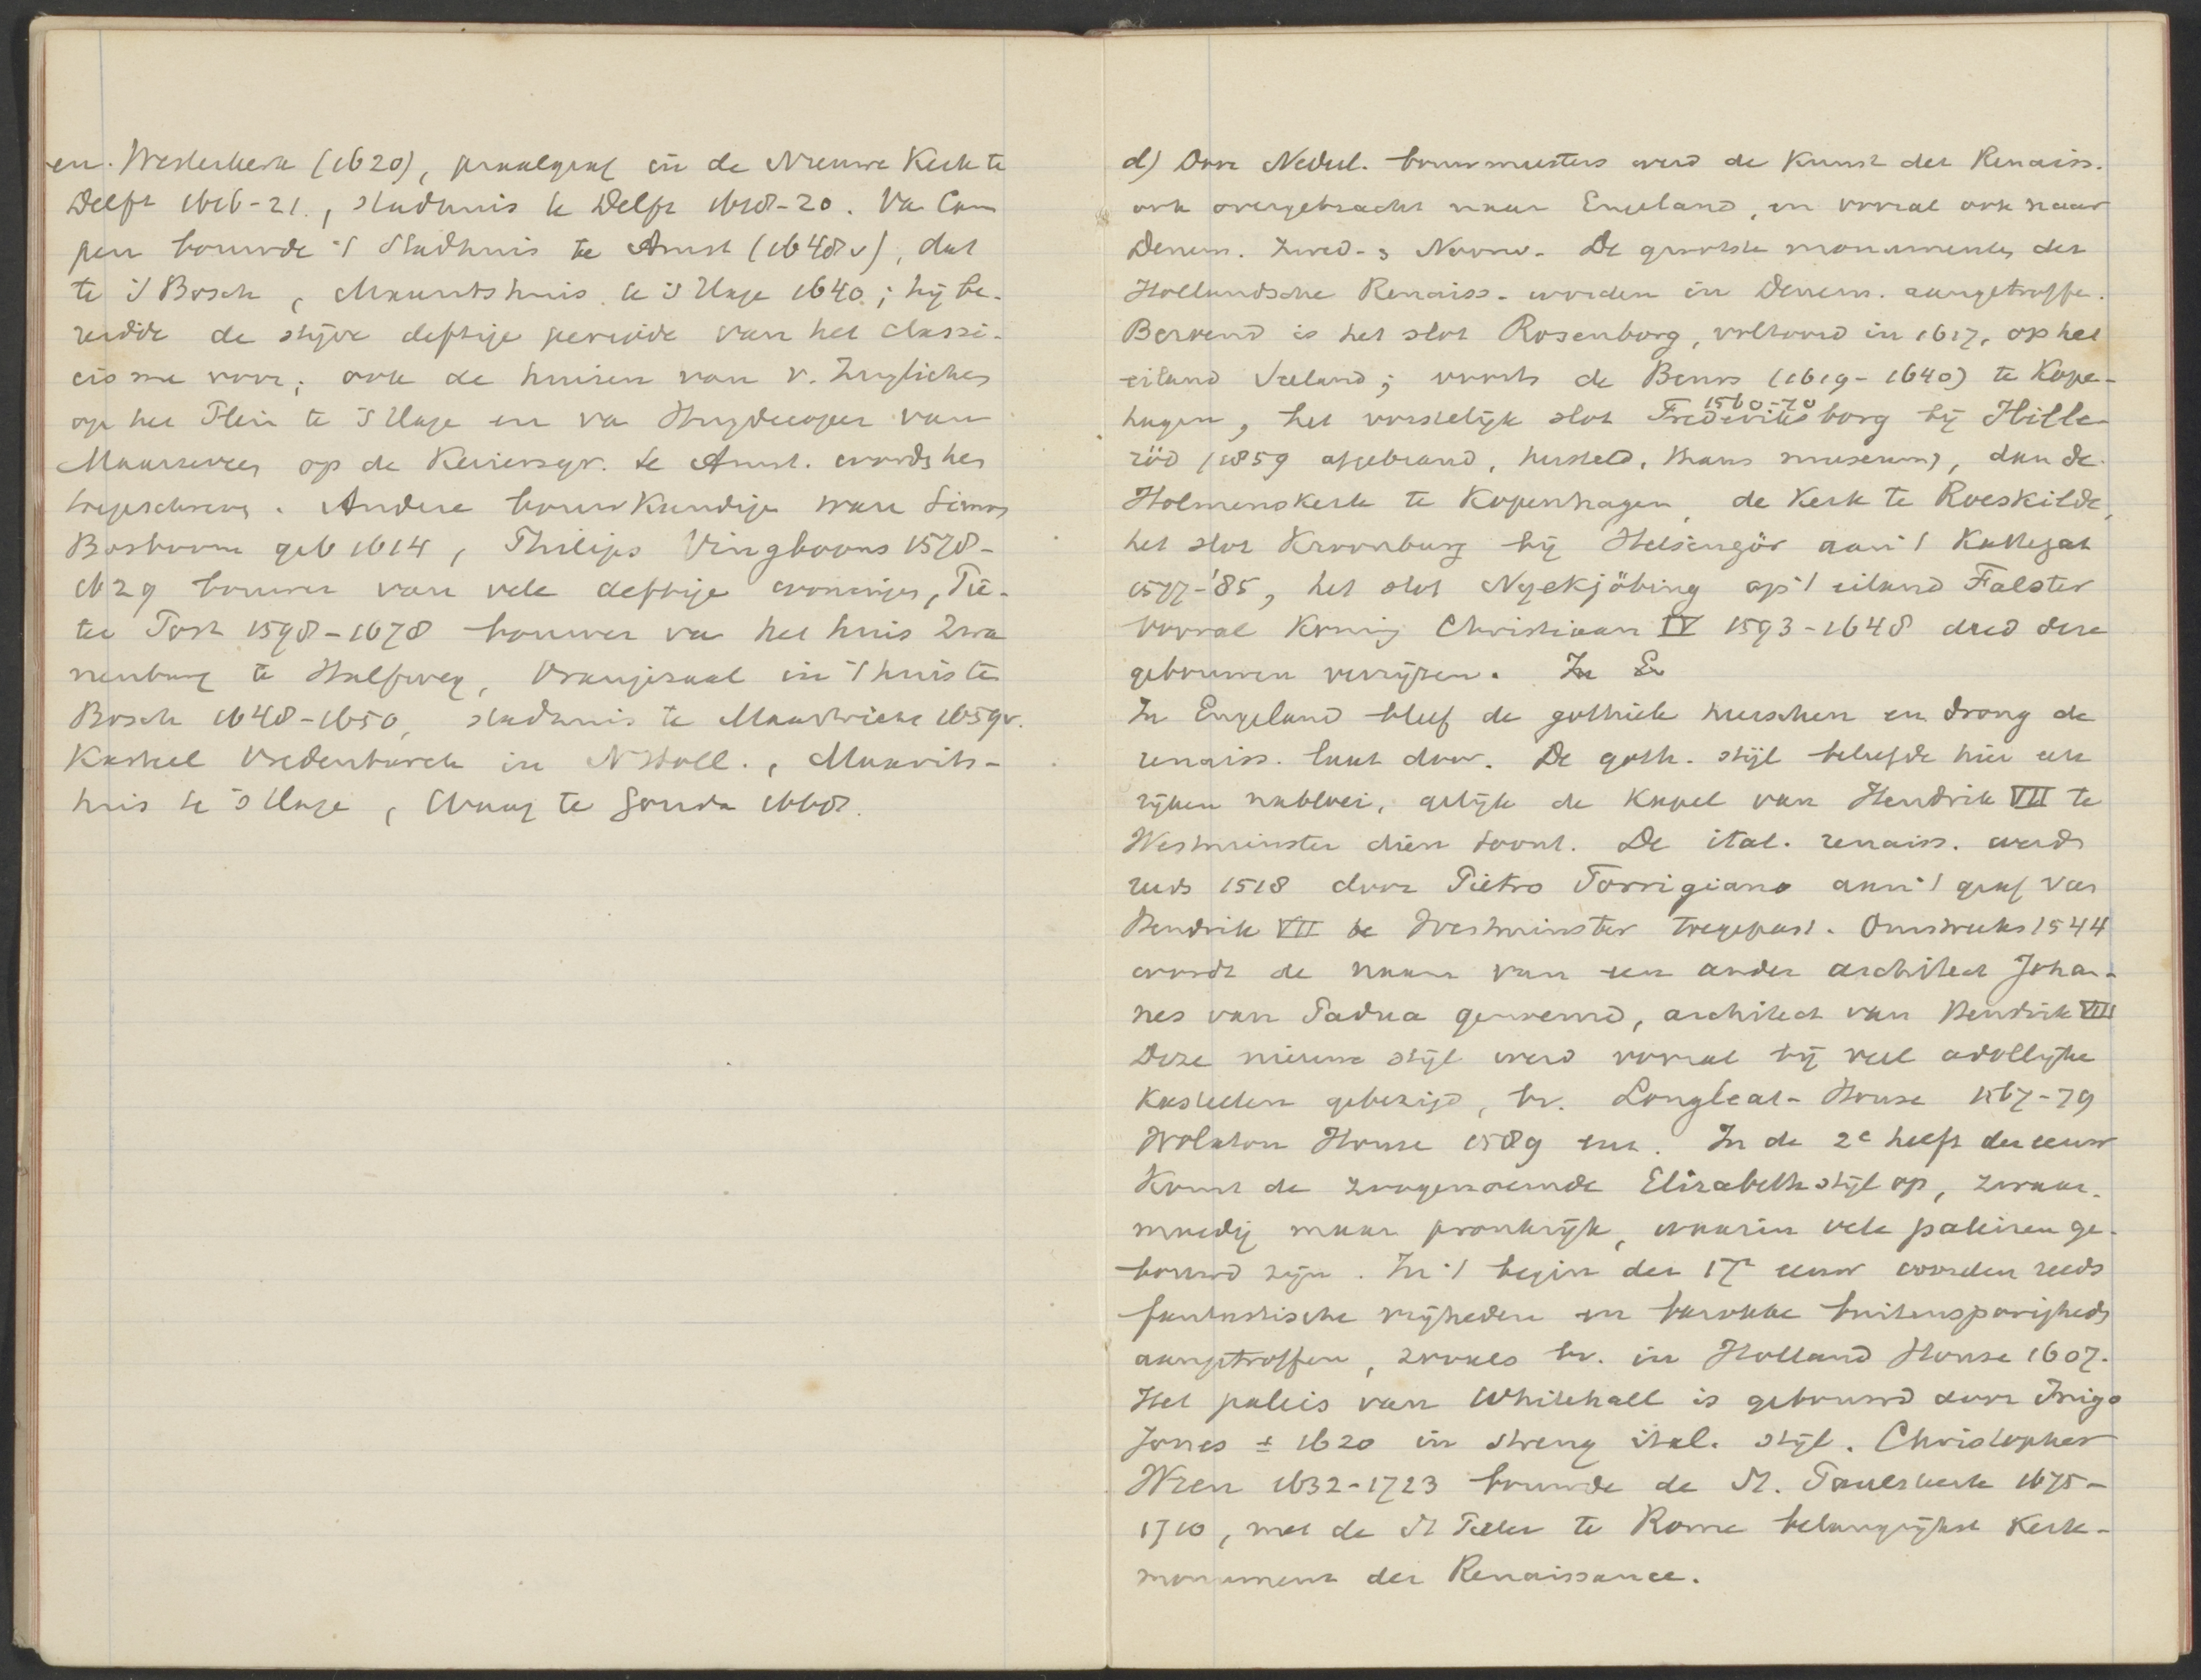 en. Westerkerk (1620), praalgraf in de Nieuwe Kerk te
Delft 1616-21, stadhuis te Delft 1618-20. Va Cam
pen bouwde 't Stadhuis te Amst (1648v), dat
te 's Bosch, Mauritshuis te 's Hage 1640; hij be-
reidde de stijve deftige periode van het classi-
cisme voor; ook de huizen van v. Zuylichem
op het Plein te 's Hage en va Huydecoper van
Maarseveen op de Keizersgr. te Amst. wordt hem
toegeschreven. Andere bouwkundige ware Simon
Bosboom geb 1614, Philips Vingboons 1578-
1629 bouwer van vele deftige woningen, Pie-
ter Post 1598-1678 bouwer va het huis Zwa
nenburg te Halfweg, Oranjezaal in 't huis te
Bosch 1648-1650, stadhuis te Maastricht 1659v.
Kasteel Vredenburch in NHoll., Maurits-
huis te 's Hage, Waag te Gouda 1668.
d) Door Nederl. bouwmeesters werd de Kunst der Renaiss.
ook overgebracht naar Engeland, en vooral ook naar
Denem. Zwed- & Noorw. De grootste monumenten der
Hollandsche Renaiss. worden in Denem. aangetroffe.
Beroemd is het slot Rosenborg, voltooid in 1617, op het
eiland Seeland; voorts de Beurs (1619-1640) te Kope-
hagen, het vorstelijk slot Frederiksborg 1560-70 bij Hille-
röd (1859 afgebrand, hersteld, thans museum), dan de
Holmenskerk te Kopenhagen, de Kerk te Roeskilde,
het slot Kroonburg bij Helsingör aan 't Kattegat
1577-'85, het slot Nyekjöbing op 't eiland Falster
Vooral Koning Christiaan IV 1593-1648 deed deze
gebouwen verrijzen. In En
In Engeland bleef de gothiek heerschen en drong de
renaiss. laat door. De goth. stijl beleefde hier een
rijken nabloei, gelijk de Kapel van Hendrik VII te
Westminster dien toont. De ital. renaiss. werd
reeds 1518 door Pietro Torrigiano aan 't graf van
Hendrik VII te Westminster toegepast. Omstreeks 1544
wordt de naam van een ander architect Johan-
nes van Padua genoemd, architect van Hendrik VIII
Deze nieuwe stijl werd vooral bij veel adellijke
Kasteelen gebezigd, bv. Longleat-House 1567-79
Wolaton House 1589 enz. In de 2e helft der eeuw
Komt de zoogenoemde Elizabethstijl op, zwaar-
moedig maar pronkrijk, waarin vele paleizen ge-
bouwd zijn. In 't begin der 17e eeuw worden reeds
fantastische vrijheden en barokke buitensporigheden
aangetroffen, zooals bv. in Holland House 1607.
Het paleis van Whitehall is gebouwd door Inigo
Jones ± 1620 in streng ital. stijl. Christopher
Wren 1632-1723 bouwde de St. Paulskerk 1675-
1710, met de St Pieter te Rome belangrijkst Kerk-
monument der Renaissance.